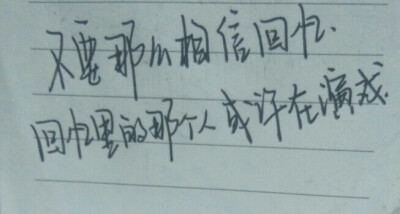 不要那么相信回忆.
回忆里的那个人或许在演戏.